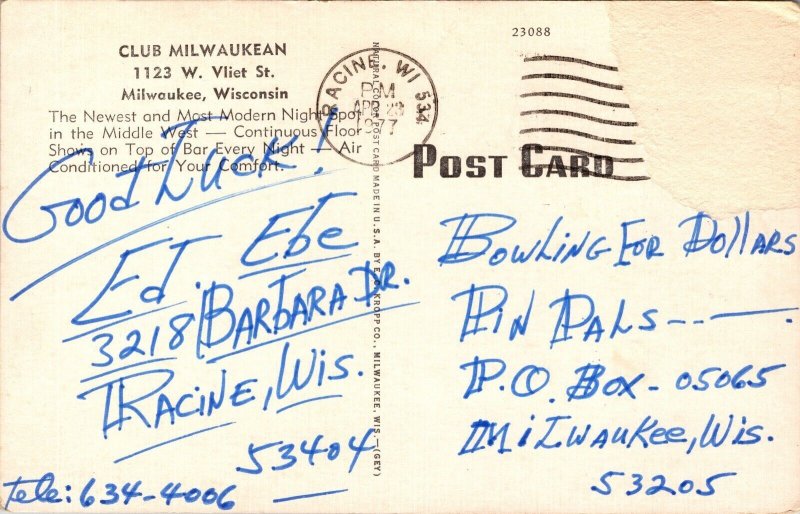 CLUB MILWAUKEAN
1123 W. Vliet St.
Milwaukee, Wisconsin
The Newest and Most Modern Night Spot
in the Middle West — Continuous Floor
Shows on Top of Bar Every Night — Air
Conditioned for Your Comfort.
Good Luck!
Ed. Ebe
3218 Barbara Dr.
Racine, Wis.
53404
Tele: 634-4006
NATURAL COLOR POST CARD MADE IN U.S.A. BY E. C. KROPP CO., MILWAUKEE, WIS.—(GEY)
RACINE, WI 534
PM
APR 23
1977
23088
POST CARD
Bowling For Dollars
Pin Pals -- — .
P.O. Box - 05065
Milwaukee, Wis.
53205